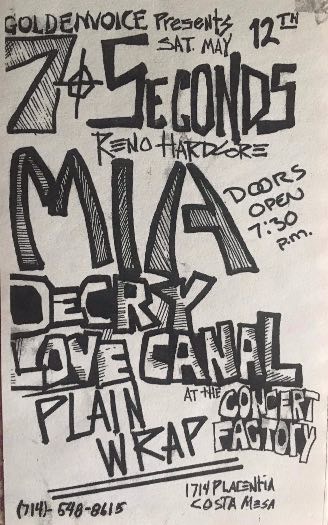 GOLDENVOICE Presents
SAT. MAY 12TH
7 SECONDS
RENO HARDCORE
MIA
DOORS
OPEN
7:30
p.m.
DECRY
LOVE CANAL
AT THE CONCERT
FACTORY
PLAIN
WRAP
1714 PLACENTIA
COSTA MESA
(714)-548-8615